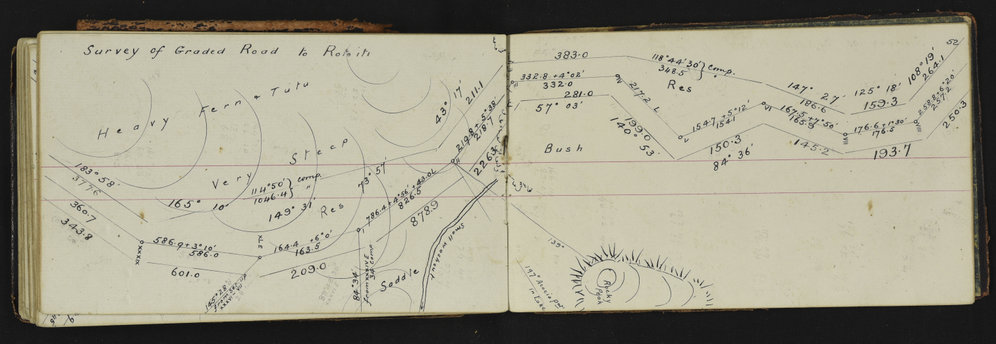 Survey of Graded Road to Rotoiti
Heavy Fern & Tutu
Very Steep
183° 58'
377.6
360.7
343.8
165° 10'
114° 50' } comp.
1046.4 } "
149° 31'
Res
73° 57'
43° 17'
211.1
219.8 + 5° 38'
218.7
226.3
XXXIX
586.9 + 3° 10'
586.0
601.0
XL
164.4 + 6° 0'
163.5
209.0
826.5
878.9
84° 34'
Saddle
Small
383.0
332.8 + 4° 02'
332.0
281.0
57° 03'
Bush
217.2
199.0
140° 53'
118° 44' 30" } comp.
348.5 } "
Res
154.7 + 5° 12'
154.1
150.3
84° 36'
147° 27'
186.6
167.5 + 7° 50'
145.2
125° 18'
159.3
176.6 + 1° 30'
176.5
193.7
108° 19'
264.1
257.2
250.3
52
Rocky
Knob
in Lake